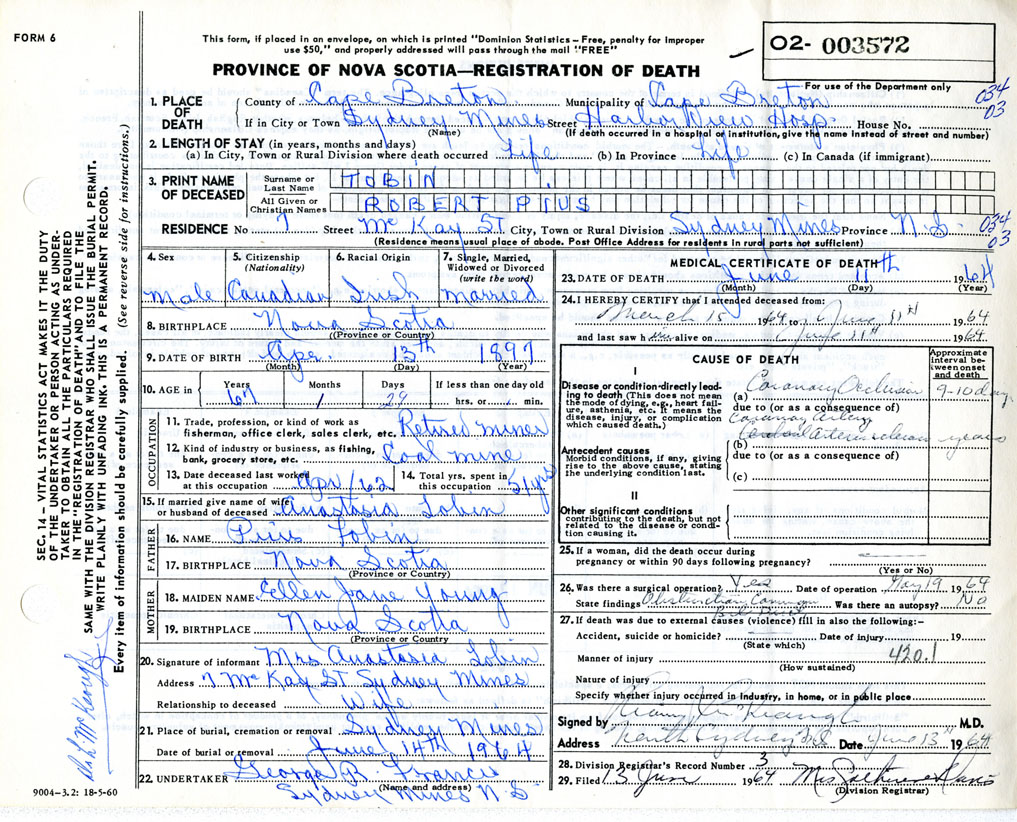 FORM 6
This form, if placed in an envelope, on which is printed "Dominion Statistics – Free, penalty for improper
use $50," and properly addressed will pass through the mail "FREE"
02- 003572
PROVINCE OF NOVA SCOTIA—REGISTRATION OF DEATH
For use of the Department only
034
03
1. PLACE OF DEATH County of Cape Breton Municipality of Cape Breton
If in City or Town Sydney Mines Street Harbor View Hosp. House No.
(Name) (If death occurred in a hospital or institution, give the name instead of street and number)
2. LENGTH OF STAY (in years, months and days)
(a) In City, Town or Rural Division where death occurred Life (b) In Province Life (c) In Canada (if immigrant)
3. PRINT NAME OF DECEASED Surname or Last Name TOBIN
All Given or Christian Names ROBERT PIUS
RESIDENCE No 7 Street McKay St City, Town or Rural Division Sydney Mines Province N.S. 034 03
(Residence means usual place of abode. Post Office Address for residents in rural parts not sufficient)
4. Sex 5. Citizenship (Nationality) 6. Racial Origin 7. Single, Married, Widowed or Divorced (write the word)
Male Canadian Irish married
8. BIRTHPLACE Nova Scotia
9. DATE OF BIRTH Apr. 13th 1897
(Month) (Day) (Year)
10. AGE in Years Months Days If less than one day old
67 1 29 hrs. or min.
OCCUPATION
11. Trade, profession, or kind of work as fisherman, office clerk, sales clerk, etc. Retired miner
12. Kind of industry or business, as fishing, bank, grocery store, etc. Coal mine
13. Date deceased last worked at this occupation Apr/62 14. Total yrs. spent in this occupation 51 yrs
15. If married give name of wife or husband of deceased Anastasia Tobin
FATHER
16. NAME Pius Tobin
17. BIRTHPLACE Nova Scotia
(Province or Country)
MOTHER
18. MAIDEN NAME Ellen Jane Young
19. BIRTHPLACE Nova Scotia
(Province or Country)
20. Signature of informant Mrs Anastasia Tobin
Address 7 McKay St Sydney Mines
Relationship to deceased Wife
21. Place of burial, cremation or removal Sydney Mines
Date of burial or removal June 14th 1964
22. UNDERTAKER George B. Francis
(Name and address)
Sydney Mines N.S
9004–3.2: 18-5-60
MEDICAL CERTIFICATE OF DEATH
23. DATE OF DEATH June 11th 1964
(Month) (Day) (Year)
24. I HEREBY CERTIFY that I attended deceased from:
March 15 1964 to June 11th 1964
and last saw him alive on June 11th 1964
CAUSE OF DEATH
Approximate interval between onset and death
I
Disease or condition directly leading to death (This does not mean the mode of dying, e.g., heart failure, asthenia, etc. It means the disease, injury, or complication which caused death.)
(a) Coronary Occlusion 9-10 days
due to (or as a consequence of)
Coronary Artery
(b) Arteriosclerosis years
due to (or as a consequence of)
(c)
Antecedent causes
Morbid conditions, if any, giving rise to the above cause, stating the underlying condition last.
II
Other significant conditions
contributing to the death, but not related to the disease or condition causing it.
25. If a woman, did the death occur during pregnancy or within 90 days following pregnancy?
(Yes or No)
26. Was there a surgical operation? Yes Date of operation May 19 1964
State findings Obstruction Common Bile Duct Was there an autopsy? No
27. If death was due to external causes (violence) fill in also the following:–
Accident, suicide or homicide? Date of injury 19
(State which)
Manner of injury 420.1
(How sustained)
Nature of injury
Specify whether injury occurred in industry, in home, or in public place
Signed by M.D.
Address North Sydney N.S. Date June 13th 1964
28. Division Registrar's Record Number 3
29. Filed 13 June 1964 Mrs Davis
(Division Registrar)
SEC. 14 – VITAL STATISTICS ACT MAKES IT THE DUTY
OF THE UNDERTAKER OR PERSON ACTING AS UNDER-
TAKER TO OBTAIN ALL THE PARTICULARS REQUIRED
IN THE "REGISTRATION OF DEATH" AND TO FILE THE
SAME WITH THE DIVISION REGISTRAR WHO SHALL ISSUE THE BURIAL PERMIT.
WRITE PLAINLY WITH UNFADING INK. THIS IS A PERMANENT RECORD.
Every item of information should be carefully supplied. (See reverse side for instructions.)